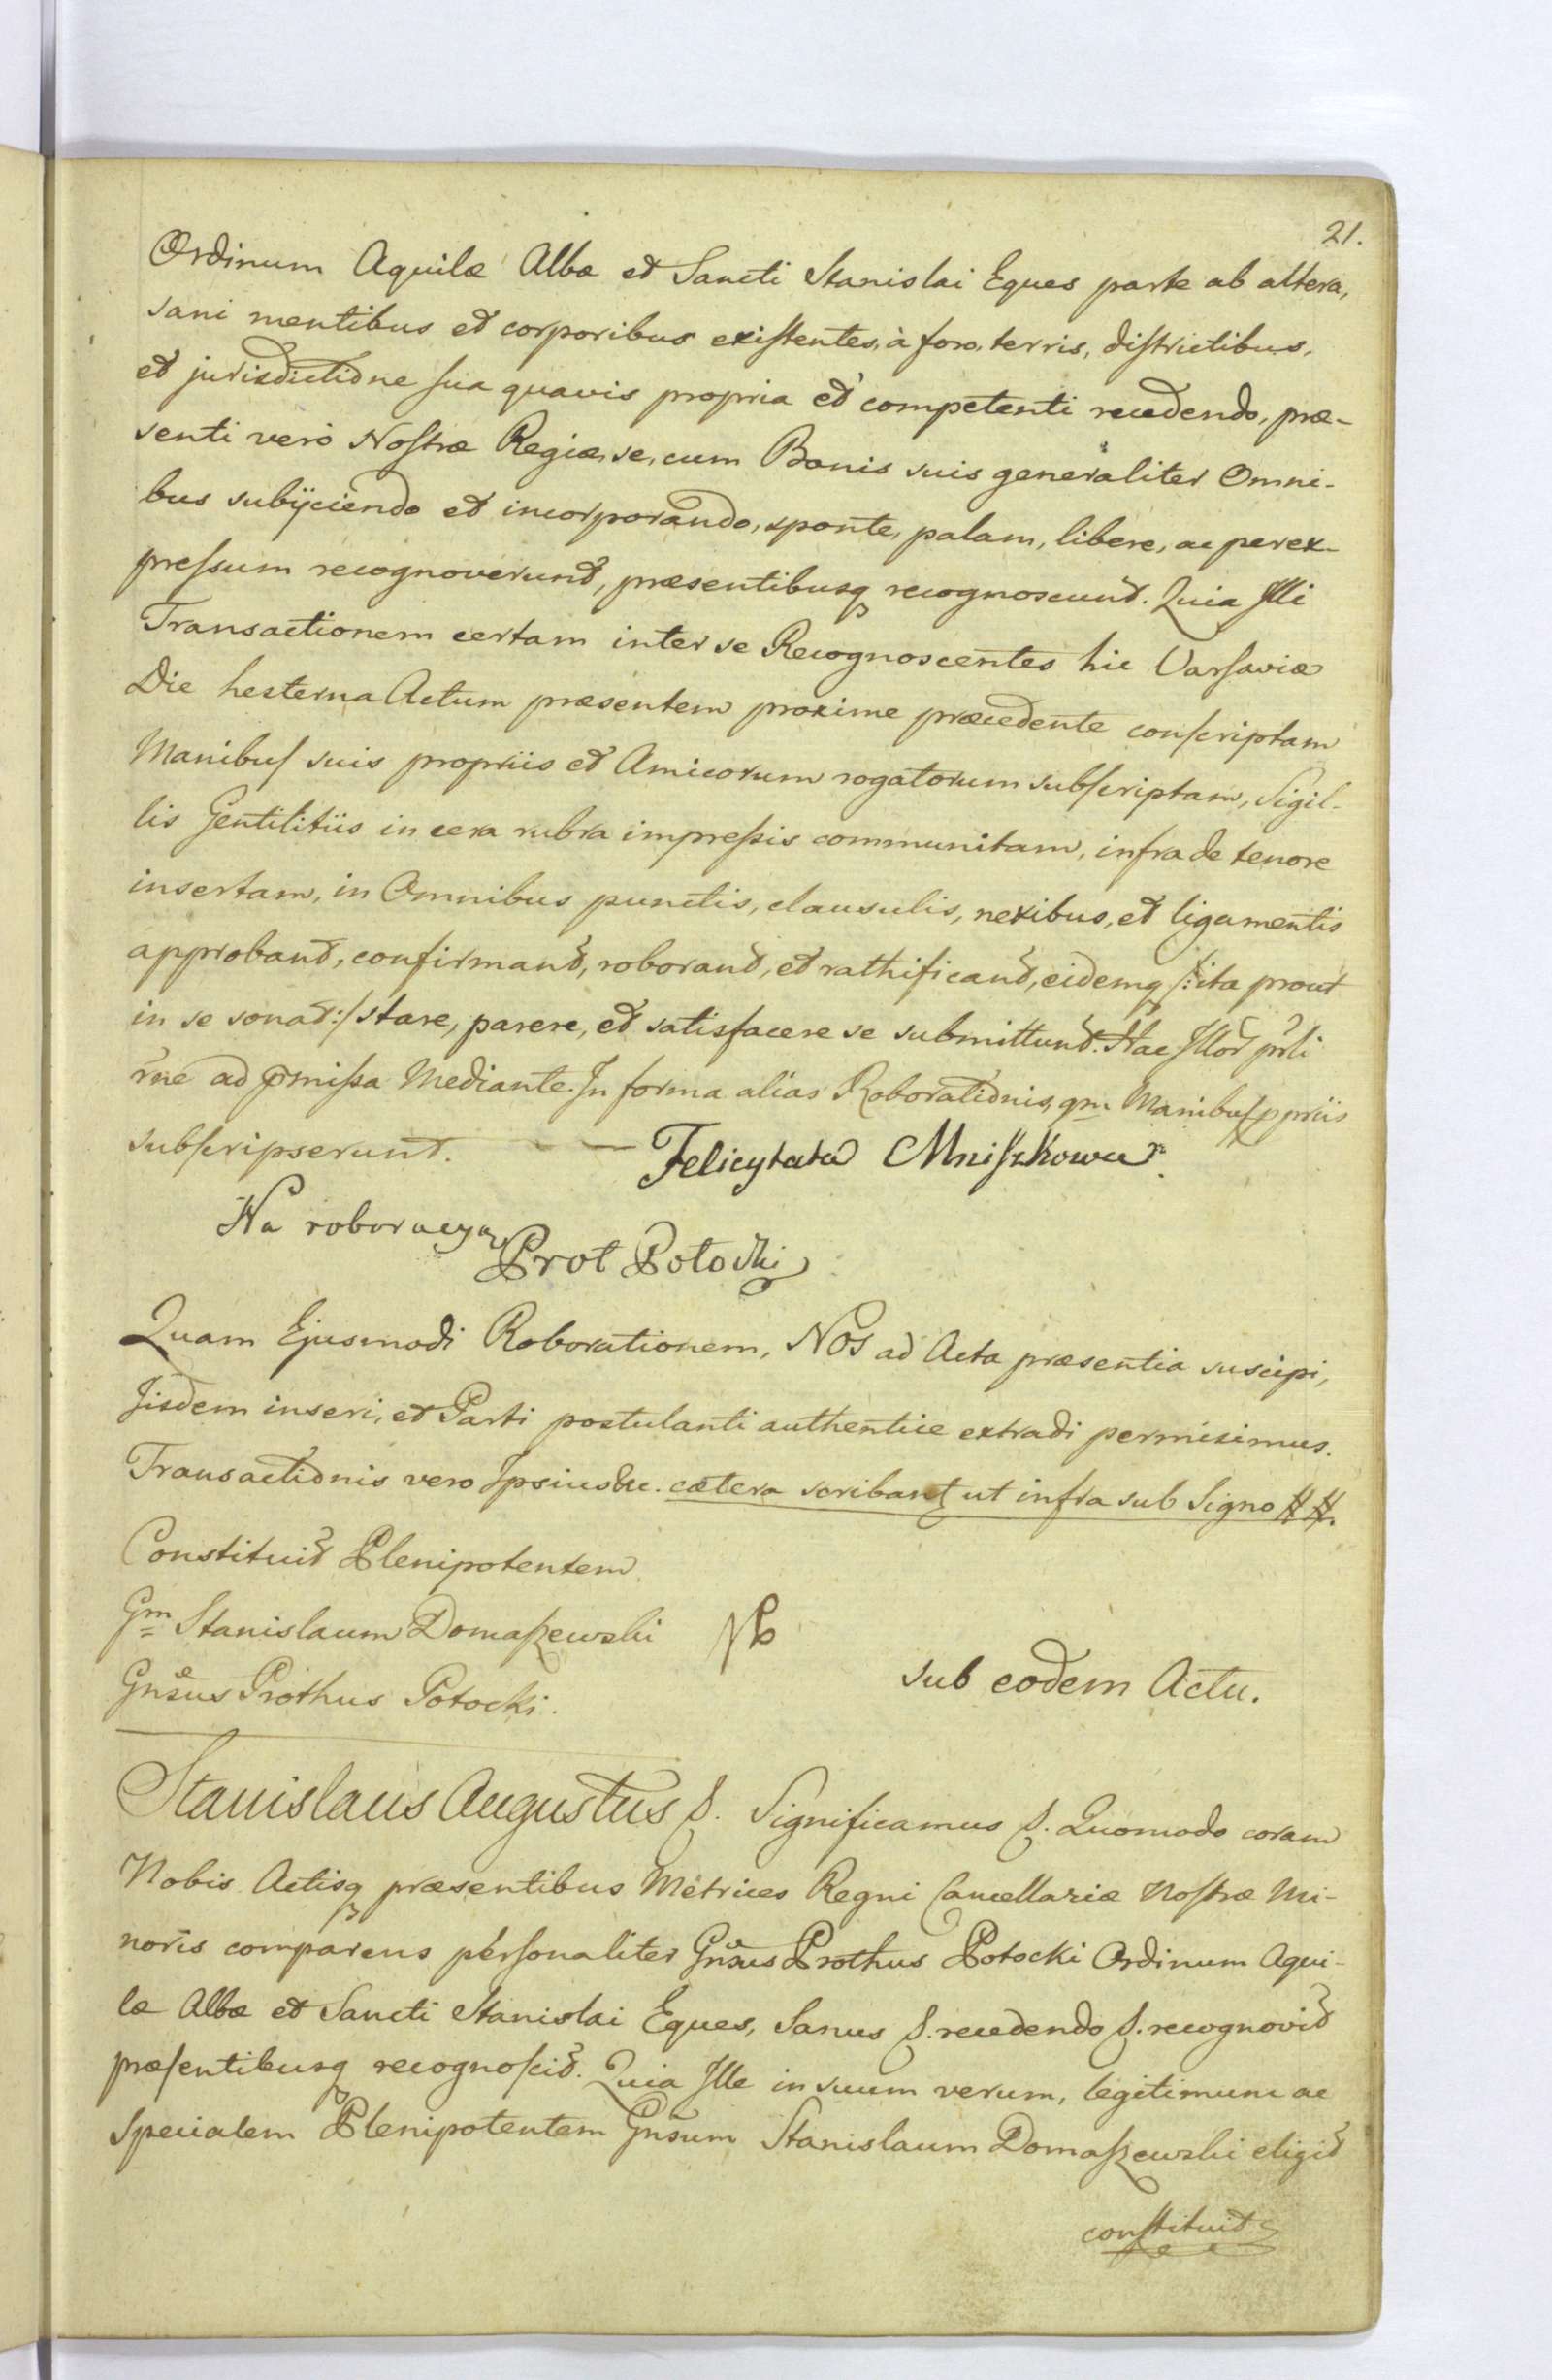 21.
Ordinum Aquilæ Albæ et Sancti Stanislai Eques parte ab altera,
sani mentibus et corporibus existentes, à foro, terris, districtibus,
et jurisdictione sua quavis propria et competenti recedendo, præ-
senti verò Nostræ Regiæ, se, cum Bonis suis generaliter Omni-
bus subijciendo et incorporando, sponte, palam, libere, ac perex-
pressum recognoverunt, præsentibusq recognoscunt. Quia Illi
Transactionem certam inter se Recognoscentes hic Varsaviæ
Die hesterna Actum præsentem proxime præcedente conscriptam
Manibus suis propriis et Amicorum rogatorum subscriptam, Sigil-
lis Gentilitiis in cera rubra impressis communitam, infra de tenore
insertam, in Omnibus punctis, clausulis, nexibus, et ligamentis
approbant, confirmant, roborant, et rathificant, eidemq /: ita prout
in se sonat :/ stare, parere, et satisfacere se submittunt. Hac Illor prli
rne ad pmissa Mediante. In forma alias Roborationis, qm Manibus ppriis
subscripserunt. — — Felicytata Mniszkowa
Na roboracyą Prot Potocki
Quam Ejusmodi Roborationem, NOS ad Acta præsentia suscipi,
Iisdem inseri, et Parti postulanti authentice extradi permisimus.
Transactionis vero Ipsius &c. cætera scribant ut infra sub Signo ##.
Constituit Plenipotentem
Gm Stanislaum Domaszewski
Gnsus Prothus Potocki.
sub eodem Actu.
Stanislaus Augustus &. Significamus &. Quomodo coram
Nobis Actisq præsentibus Metrices Regni Cancellariæ Nostræ Mi-
noris comparens personaliter Gnsus Prothus Potocki Ordinum Aqui-
læ Albæ et Sancti Stanislai Eques, Sanus &. recedendo &. recognovit
præsentibusq recognoscit. Quia Ille in suum verum, legitimum ac
Specialem Plenipotentem Gnsum Stanislaum Domaszewski eligit
constituit